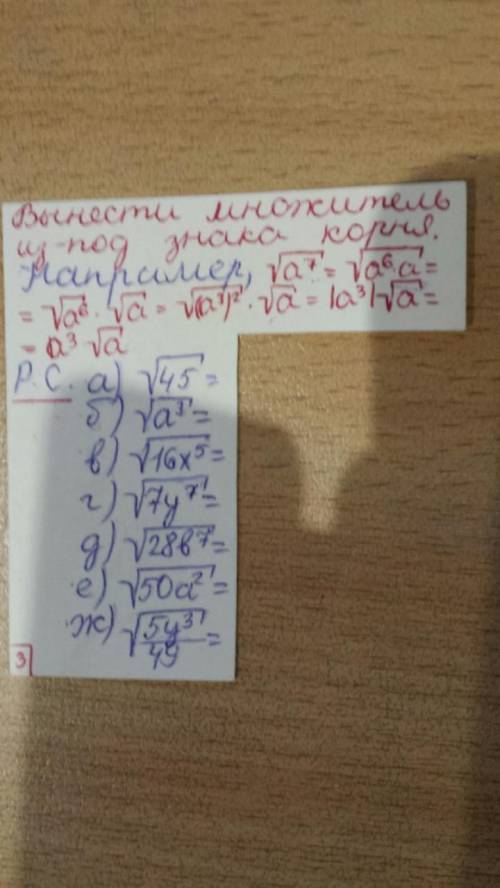 Вынести множитель
из-под знака корня.
Например, √a⁷ = √a⁶·a =
= √a⁶ · √a = √(a³)² · √a = |a³|√a =
= a³ √a
Р.С. а) √45 =
б) √a³ =
в) √16x⁵ =
г) √7y⁷ =
д) √28b⁷ =
е) √50a² =
ж) √5y³/49 =
3